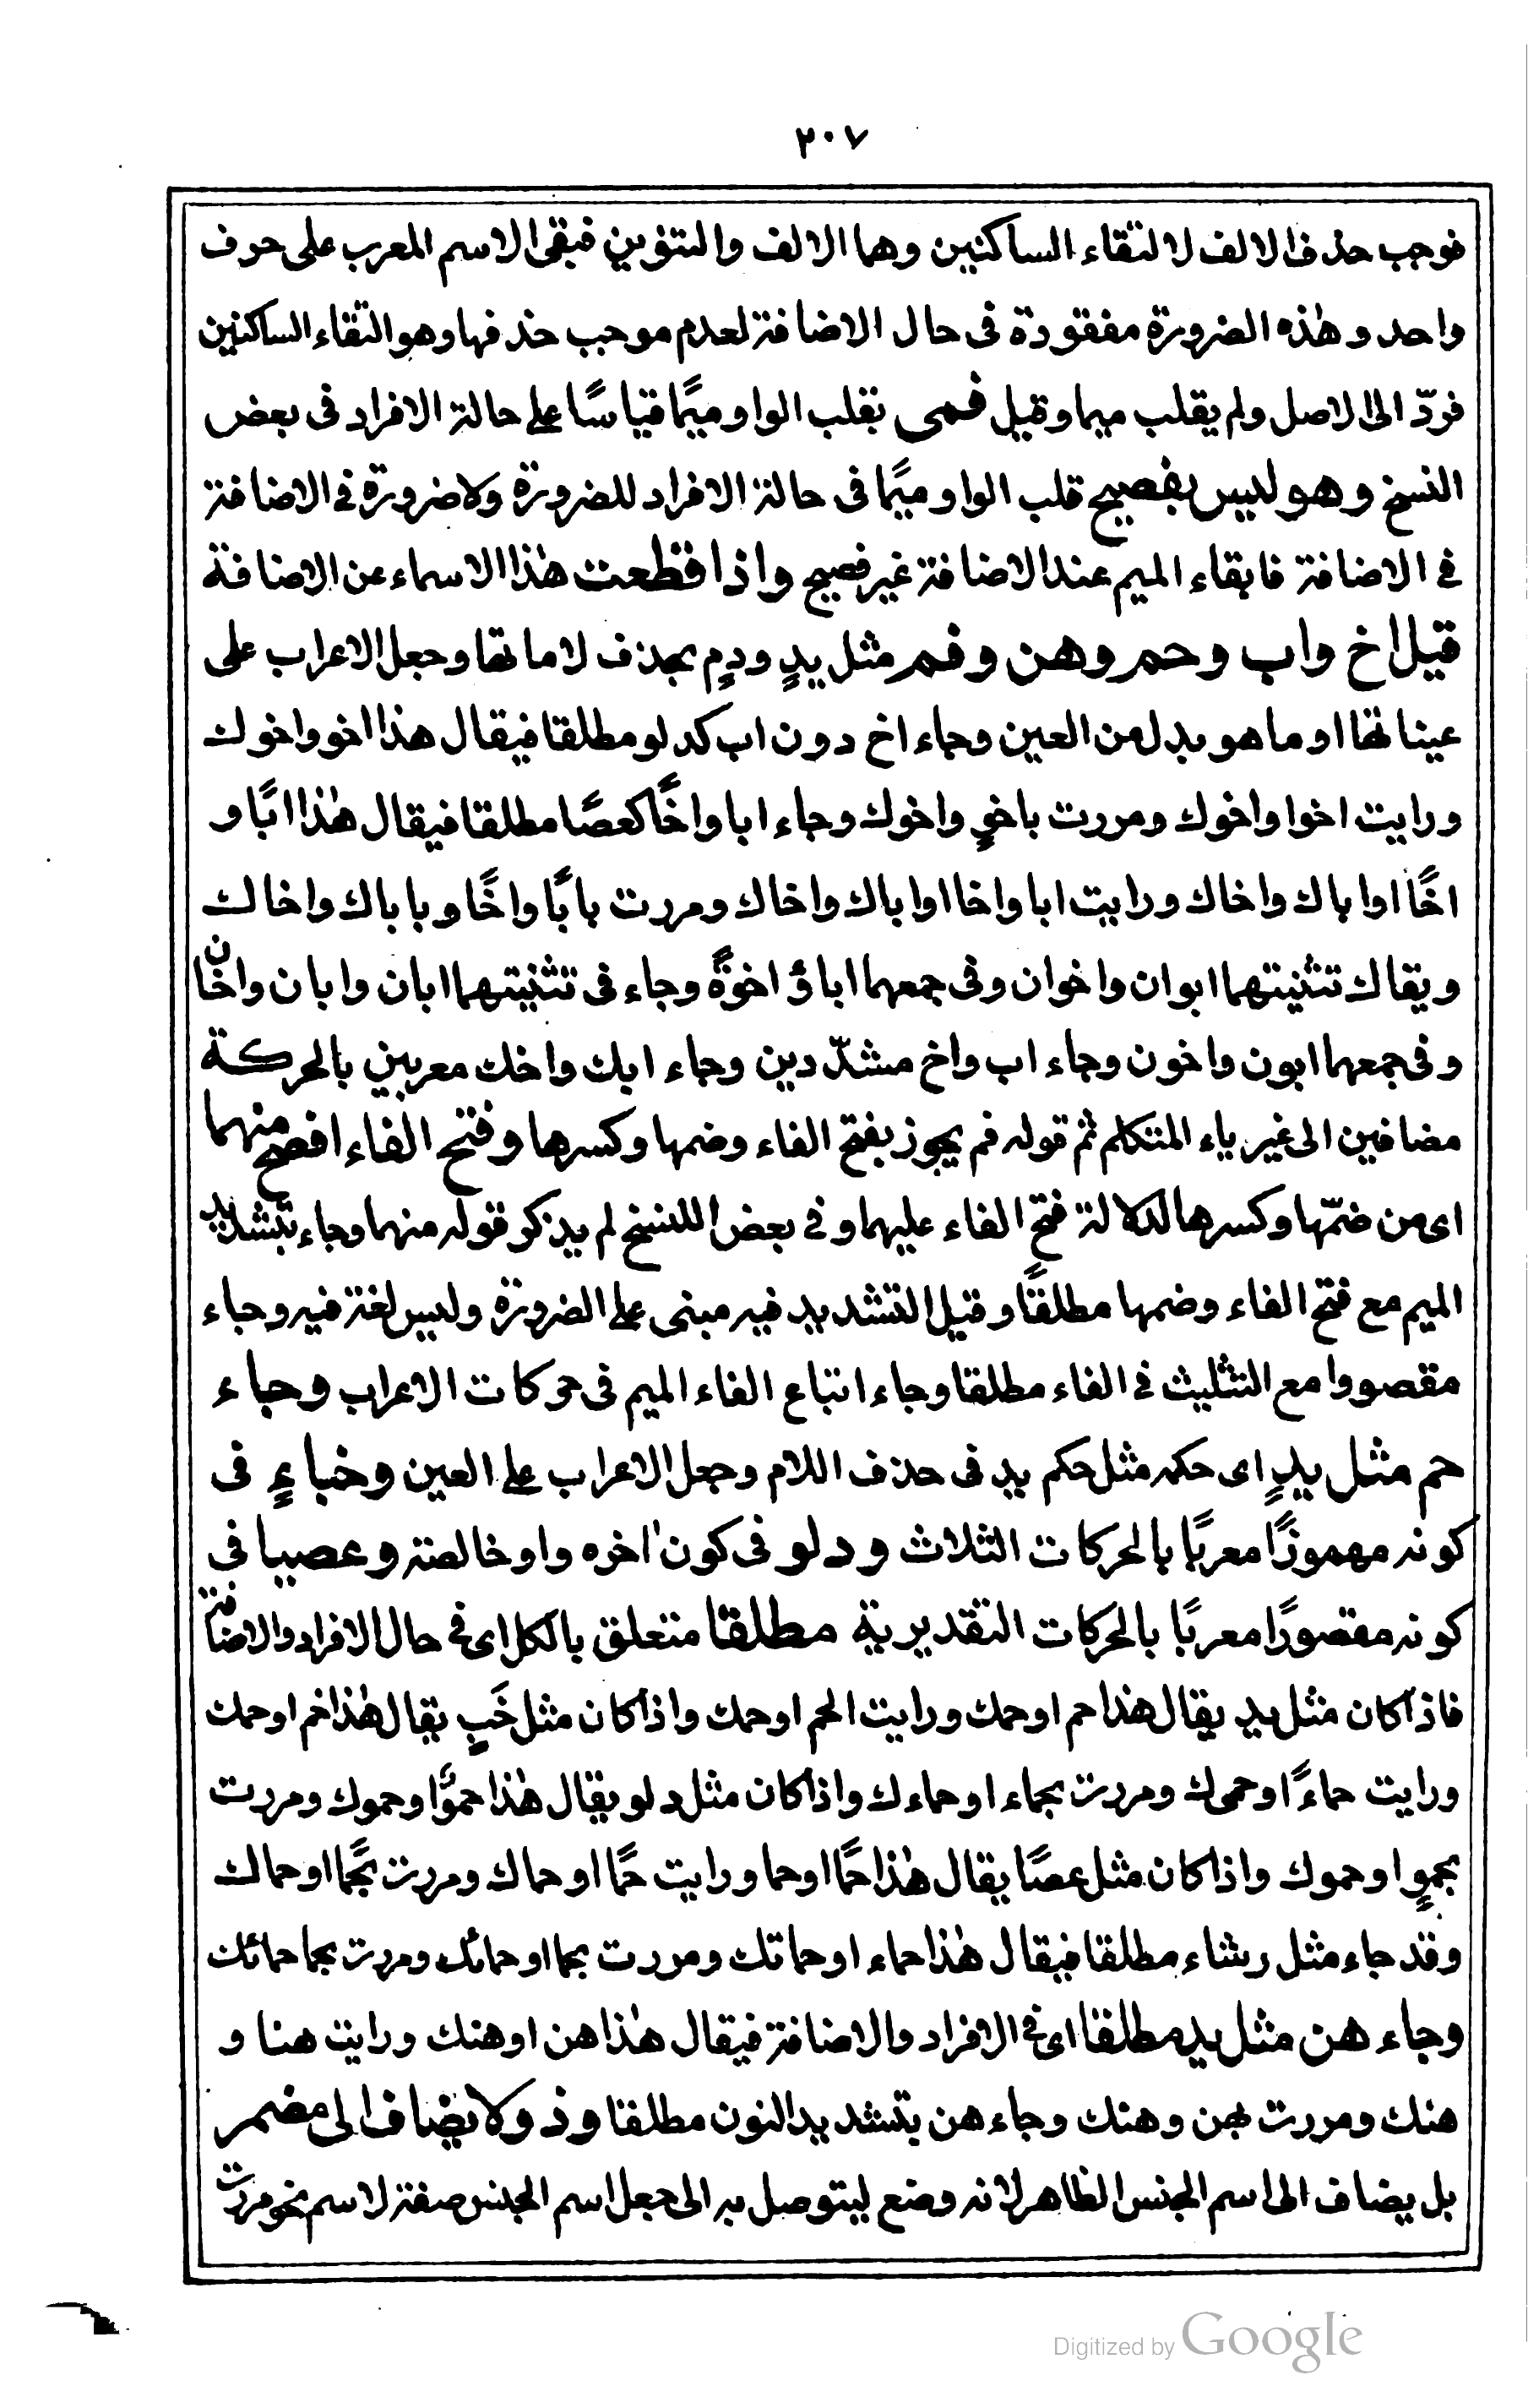 ٢٠٧
فوجب حذف الالف لالتقاء الساكنين وهما الالف والتنوين فبقى الاسم المعرب على حرف
واحد وهذه الضرورة مفقودة فى حال الاضافة لعدم موجب حذفها وهو التقاء الساكنين
فردّ الى الاصل ولم يقلب ميما وقيل فمى بقلب الواو ميمًا قياسًا على حالة الافراد فى بعض
النسخ وهو ليس بفصيح قلب الواو ميمًا فى حالة الافراد للضرورة ولا ضرورة فى الاضافة
فى الاضافة فابقاء الميم عند الاضافة غير فصيح واذا قطعت هذا الاسماء عن الاضافة
قيل اخ واب وحم وهن وفم مثل يدٍ ودمٍ بحذف لاماتها وجعل الاعراب على
عيناتها او ما هو بدل من العين وجاء اخ دون اب كدلو مطلقا فيقال هذا اخو واخوك
ورايت اخوا واخوك ومررت باخوٍ واخوك وجاء ابا واخًا كعصًا مطلقا فيقال هذا ابًا و
اخًا اواباك واخاك ورايت ابا واخا اواباك واخاك ومررت بابًا واخًا وباباك واخاك
ويقاك تثنيتهما ابوان واخوان وفى جمعهما اباؤ اخوةً وجاء فى تثنيتهما ابان وابان واخان
وفى جمعهما ابون واخون وجاء اب واخ مشدّدين وجاء ابك واخك معربين بالحركة
مضافين الى غير ياء المتكلم ثم قوله فم يجوز بفتح الفاء وضمها وكسرها وفتح الفاء افصح منهما
اى من ضمّها وكسرها لدلالة فتح الفاء عليهما وفى بعض اللنسخ لم يذكو قوله منهما وجاء بتشديد
الميم مع فتح الفاء وضمها مطلقًا وقيل التشديد فيه مبنى على الضرورة وليس لغة فيه وجاء
مقصورا مع التثليث فى الفاء مطلقا وجاء اتباع الفاء الميم فى حركات الاعراب وجاء
حم مثل يدٍ اى حكمه مثل حكم يد فى حذف اللام وجعل الاعراب على العين وخباءٍ فى
كونه مهموزًا معربًا بالحركات الثلاث ودلو فى كون اخره واو خالصة وعصيبا فى
كونه مقصورًا معربًا بالحركات التقديرية مطلقا متعلق بالكل اى فى حال الافراد والاضافة
فاذا كان مثل يد يقال هذا حم اوحمك ورايت الحم اوحمك واذا كان مثل خَبٍ يقال هذا خم اوحمك
ورايت حماءً اوحمى‌ك ومررت بجماء اوحماءك واذا كان مثل دلو يقال هذا حموٌ اوحموك ومررت
بحموٍ اوحموك واذا كان مثل عصًا يقال هذا حمًا اوحما ورايت حمًا اوحماك ومررت بحمًا اوحماك
وقد جاء مثل رشاء مطلقا فيقال هذا حماء اوحماتك ومررت بحما اوحمائك ومررت بحما حمائك
وجاء هن مثل يد مطلقا اى فى الافراد والاضافة فيقال هذا هن اوهنك ورايت هنا و
هنك ومررت بهن وهنك وجاء هن بتشديد النون مطلقا وذو لا يضاف الى مضمر
بل يضاف الى اسم الجنس الظاهر لانه وضع ليتوصل به الى جعل اسم الجنس صفة لاسم نحو مررت
Digitized by Google